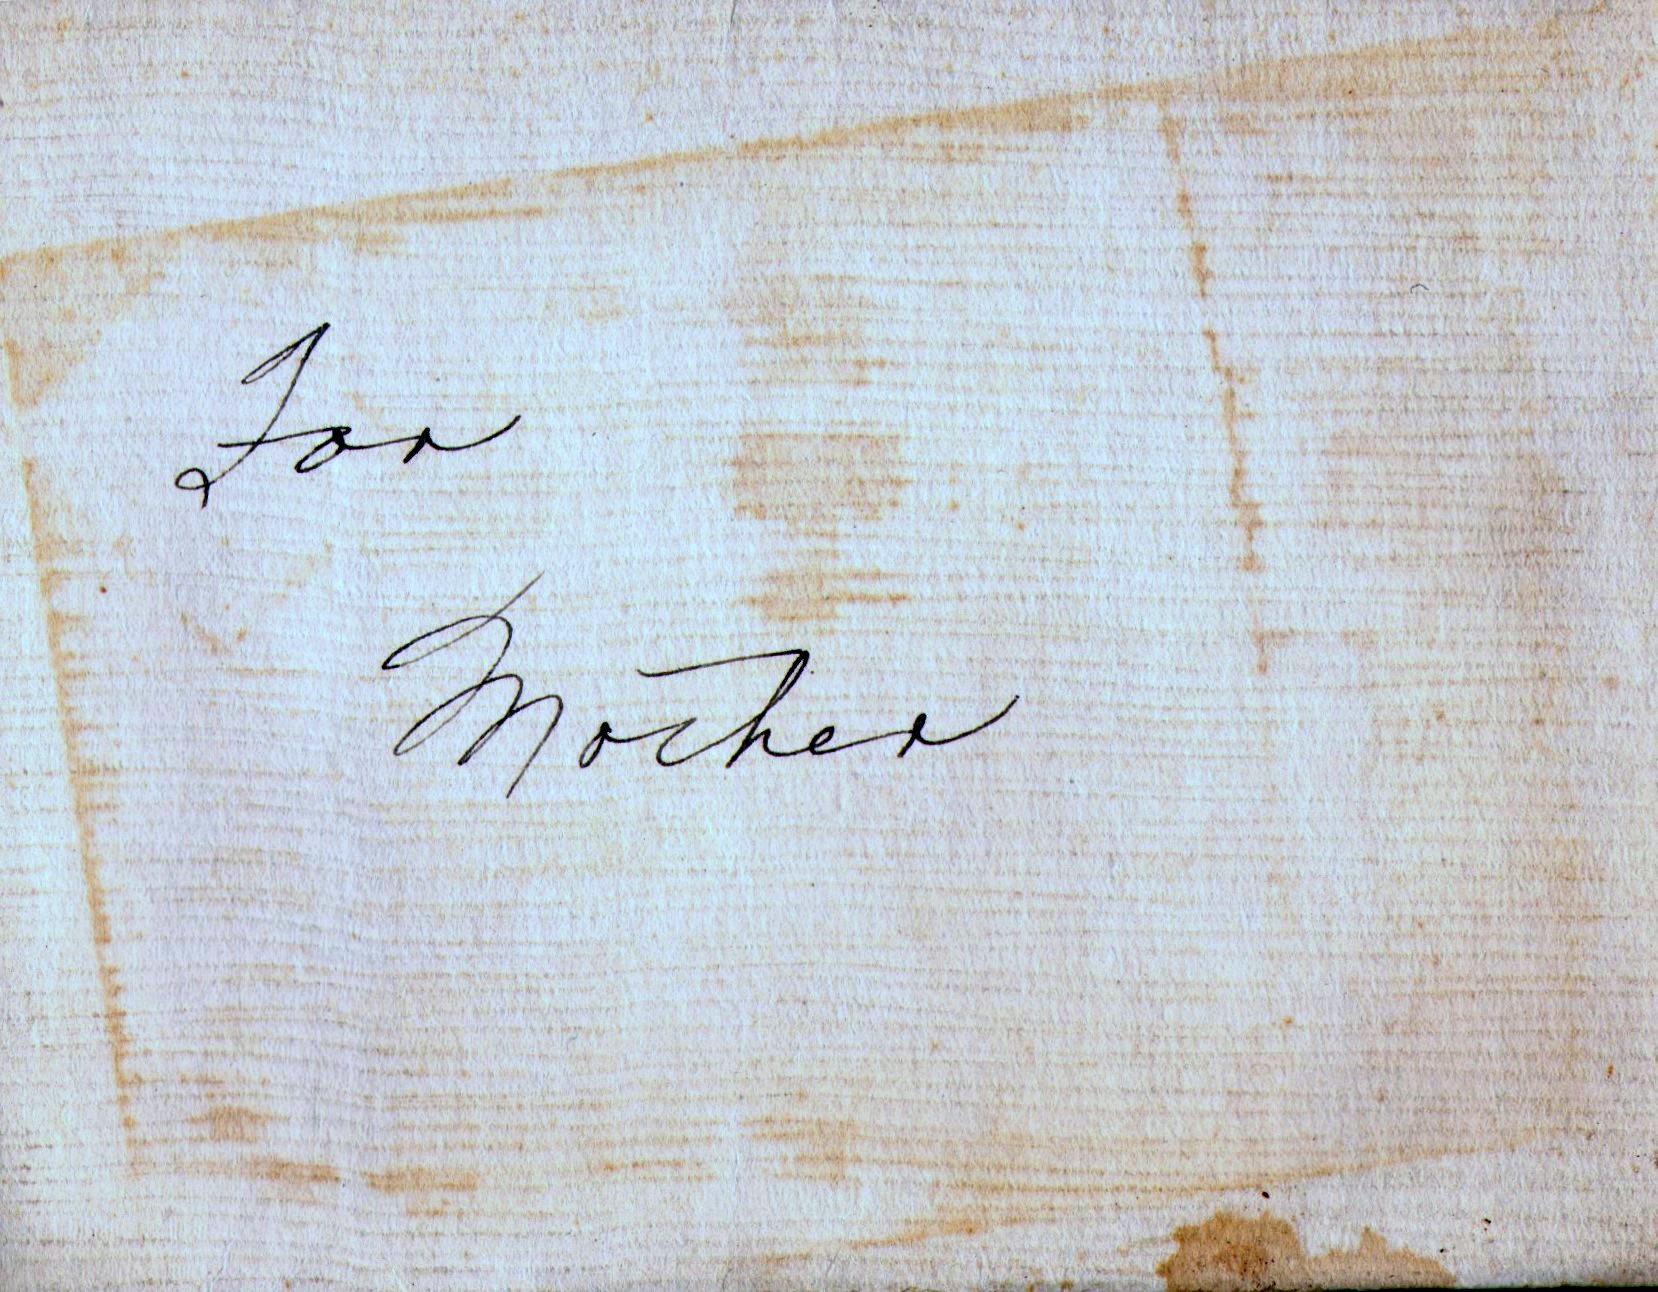 For
Mother